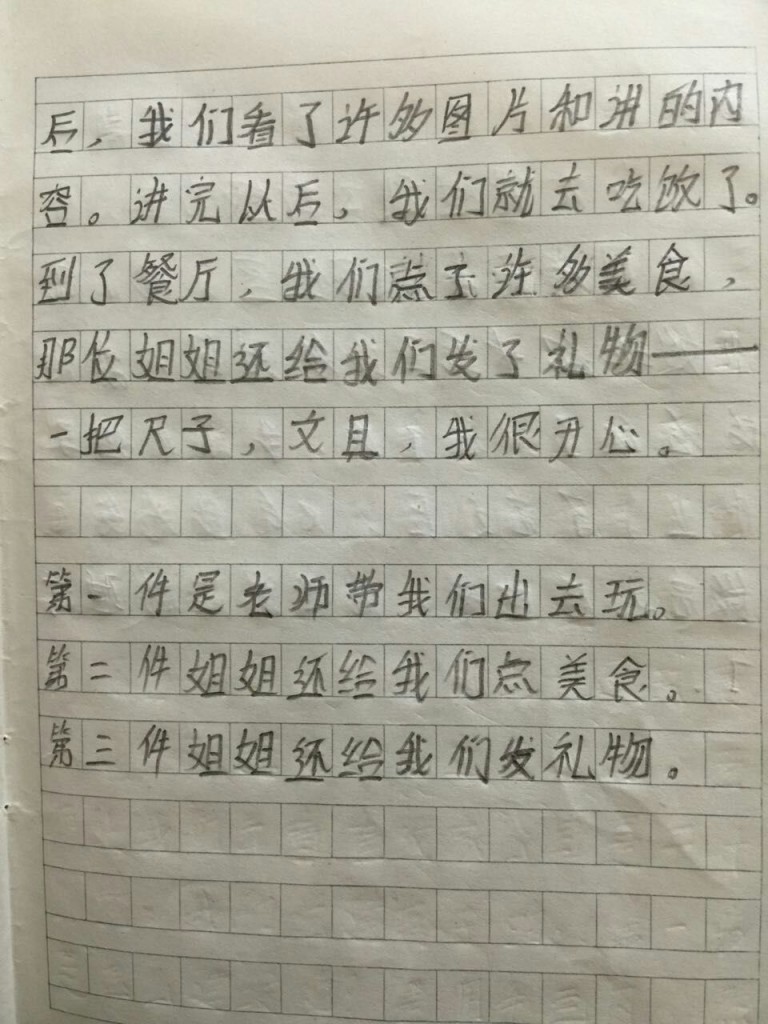 后，我们看了许多图片和讲的内
容。讲完以后，我们就去吃饭了。
到了餐厅，我们点了许多美食，
那位姐姐还给我们发了礼物——
一把尺子，文具，我很开心。
第一件是老师带我们出去玩。
第二件姐姐还给我们点美食。
第三件姐姐还给我们发礼物。